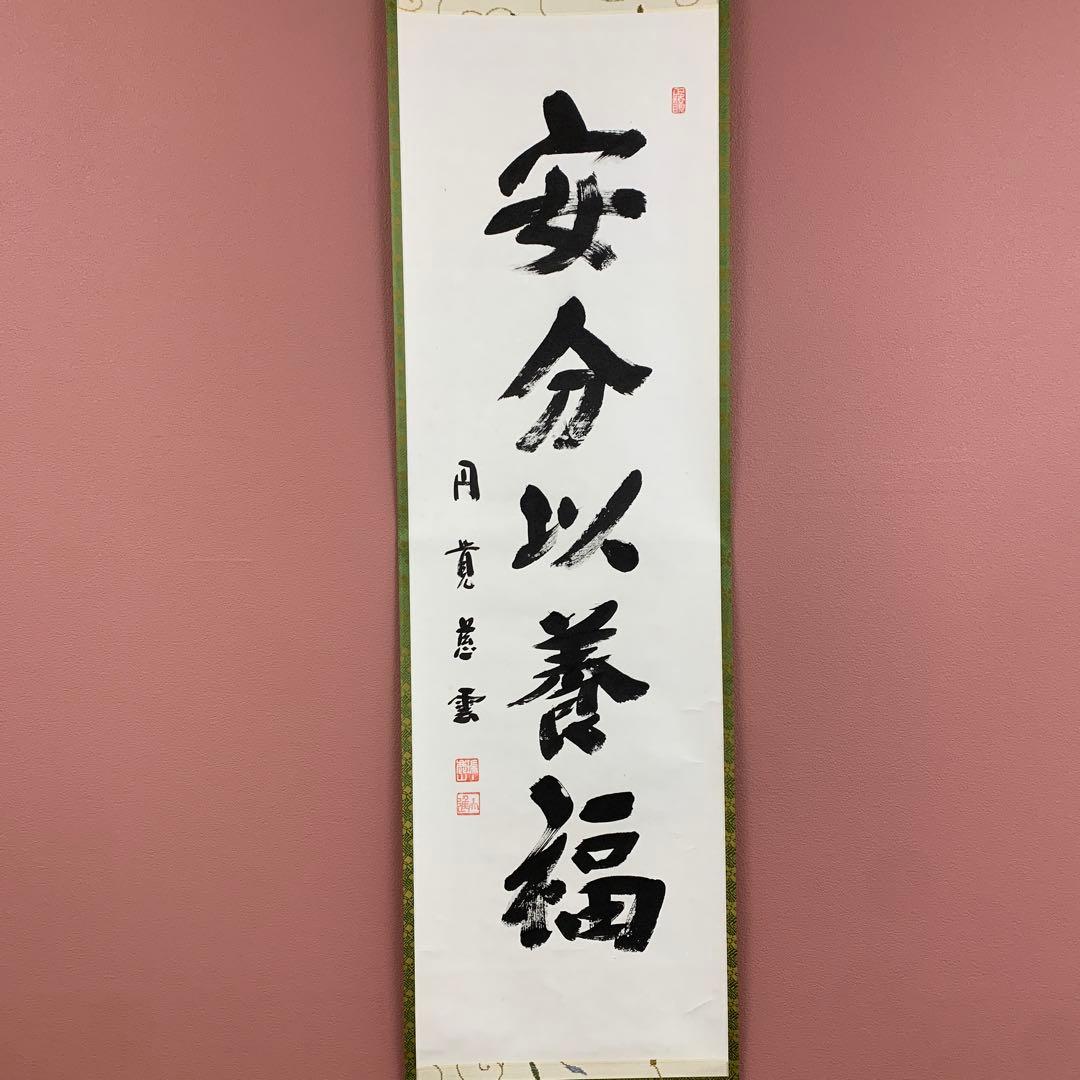 安分以養福
円覚慈雲